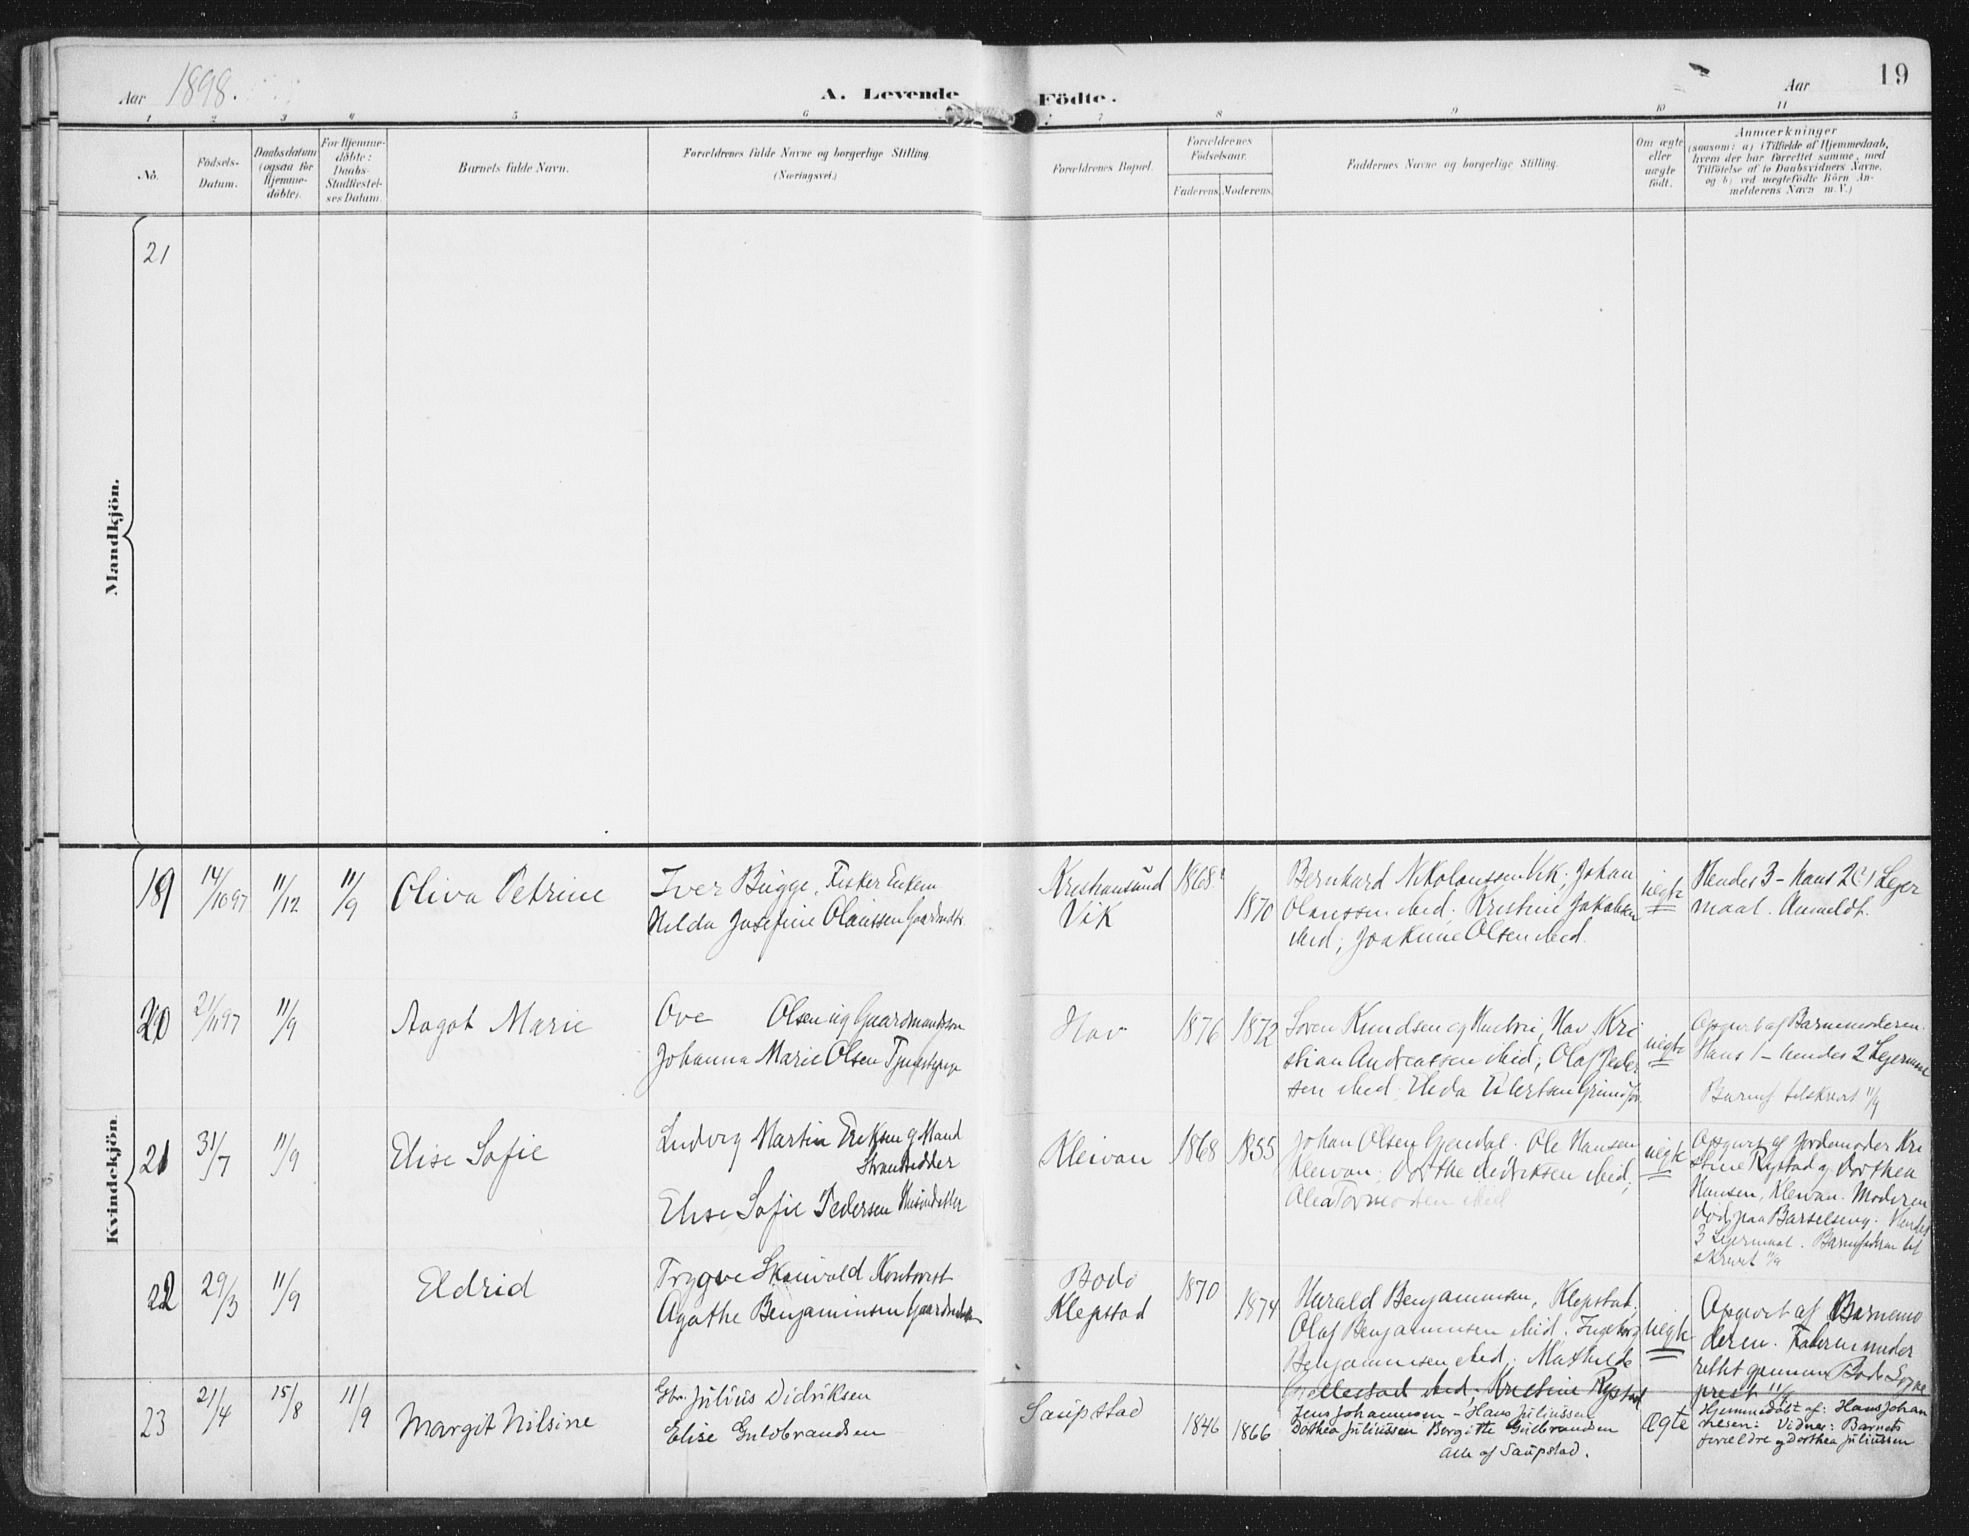 Aar 1898. A. Levende Födte. Aar 19
1 2 3 4 5 6 7 8 9 10 11
No.
Födsels-
Datum.
Daabsdatum
(ogsaa för
Hjemme-
döbte).
For Hjemme-
döbte:
Daabs-
Stadfæstel-
ses Datum.
Barnets fulde Navn.
Forældrenes fulde Navne og borgerlige Stilling
(Næringsvei.)
Forældrenes Bopæl.
Forældrenes
Födselsaar.
Faderens. Moderens.
Faddernes Navne og borgerlige Stilling.
Om ægte
eller
uægte
födt.
Anmærkninger
(saasom: a) i Tilfælde af Hjemmedaab,
hvem der har forrettet samme, med
Tilföielse af to Daabsvidners Navne,
og b) ved uægtefödte Börn An-
melderens Navn m. V.)
Mandkjön.
21
Kvindekjön
19
14/10 97
11/12
11/9
Oliva Petrine
Iver Bugge, Fisker Enkem
Hilda Josefine Olaussen Gaardmdtr
Kristiansund
Vik
1868
1870
Bernhard Nikolaussen Vik; Johan
Olaussen ibid; Kristine Jakobsen
ibid; Joakime Olsen ibid.
uegte
Hendes 3 - hans 2det Leier
maal. Anmeldt.
20
21/11 97
11/9
Aagot Marie
Ove Olsen ug Gaardmandssøn
Johanna Marie Olsen Tjenestepige
Hov
1876
1872
Søren Knudsen og Hustru, Hov, Kri
stian Andreassen ibid; Olaf Peder
sen ibid; Elida Eilertsen Grimsfor
uegte
Opgivet af Barnemoderen
Hans 1 - hendes 2 Leiermaal
Barnef tilskrevet 11/9
21
31/7
11/9
Elise Sofie
Ludvig Martin Eriksen g Mand
Strandsidder
Elise Sofie Pedersen Husmdatter
Kleivan
1868
1855
Johan Olsen Gjendal. Ole Hansen
Kleivan; Dorthe Didriksen ibid;
Olea Tormodsen ibid
uegte
Opgivet af Jordemoder Kri
stine Rystad og Dorthea
Hansen, Kleivan. Moderen
død paa Barselseng. Hendes
3 Leiermaal. Barnefaderen til
skrevet 11/9
22
29/3
11/9
Eldrid
Trygve Skaivold Kontorist
Agathe Benjaminsen Gaardmdatter
Bodø
Klepstad
1870
1874
Harald Benjaminsen, Klepstad,
Olaf Benjaminsen ibid. Ingeborg
Benjaminsen ibid; Mathilde
Gjellestad ibid; Kristine Rystad
uegte
Opgivet af Barnemo
deren. Faderen under
rettet gjennem Bodø Sogne
prest 11/9
23
21/4
15/8
11/9
Margit Nilsine
Gbr. Julius Didriksen
Elise Guldbrandsen
Saupstad
1846
1866
Jens Johannesen - Hans Juliussen
Dorthea Juliussen Bergitte Guldbrandsen
Alle af Saupstad.
Ægte
Hjemmedøbt af: Hans Johan
nesen: Vidner: Barnets
forældre og Dorthea Juliussen